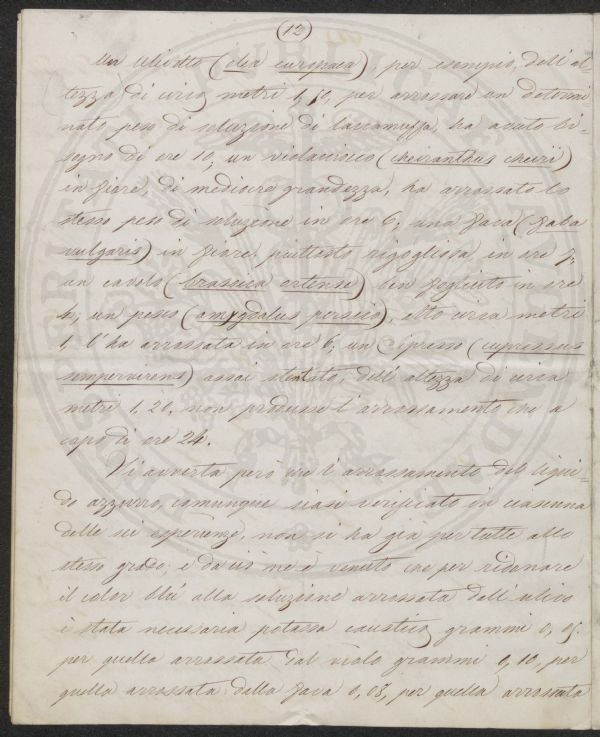 (12)
Un ulivetto (olea europaea) per esempio, dell'al-
tezza di circa metri 1,50, per arrossare un determi-
nato peso di soluzione di laccamuffa, ha avuto bi-
sogno di ore 10; un violacciocco (cheiranthus cheiri)
in fiore, di mediocre grandezza, ha arrossato lo
stesso peso di soluzione in ore 6; una fava (faba
vulgaris) in fiore, piuttosto rigogliosa in ore 7;
un cavolo (brassica ortense) ben fogliuto in ore
4; un pesco (amygdalus persica), alto circa metri
1, l'ha arrossata in ore 6; un Cipresso (cupressus
sempervirens) assai stentato, dell'altezza di circa
metri 1,20, non produsse l'arrossamento che a
capo di ore 24.
Vi avverta però che l'arrossamento del liqui-
do azzurro, comunque siasi verificato in ciascuna
delle sei esperienze, non si ha già per tutte allo
stesso grado; e da ciò me è venuto che per ridonare
il color blù alla soluzione arrossata dall'ulivo
è stata necessaria potassa caustica grammi 0,05.
per quella arrossata dal violo grammi 0,10, per
quella arrossata dalla fava 0,08, per quella arrossata